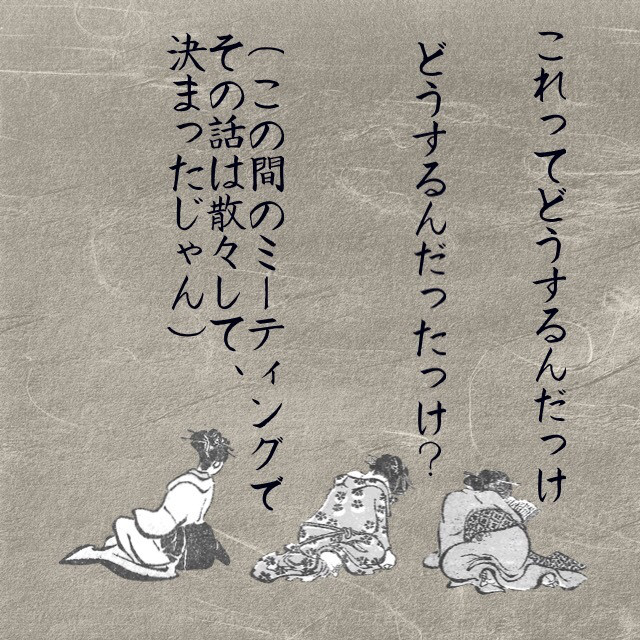 これってどうするんだっけ
どうするんだったっけ？
（この間のミーティングで
その話は散々して、
決まったじゃん）